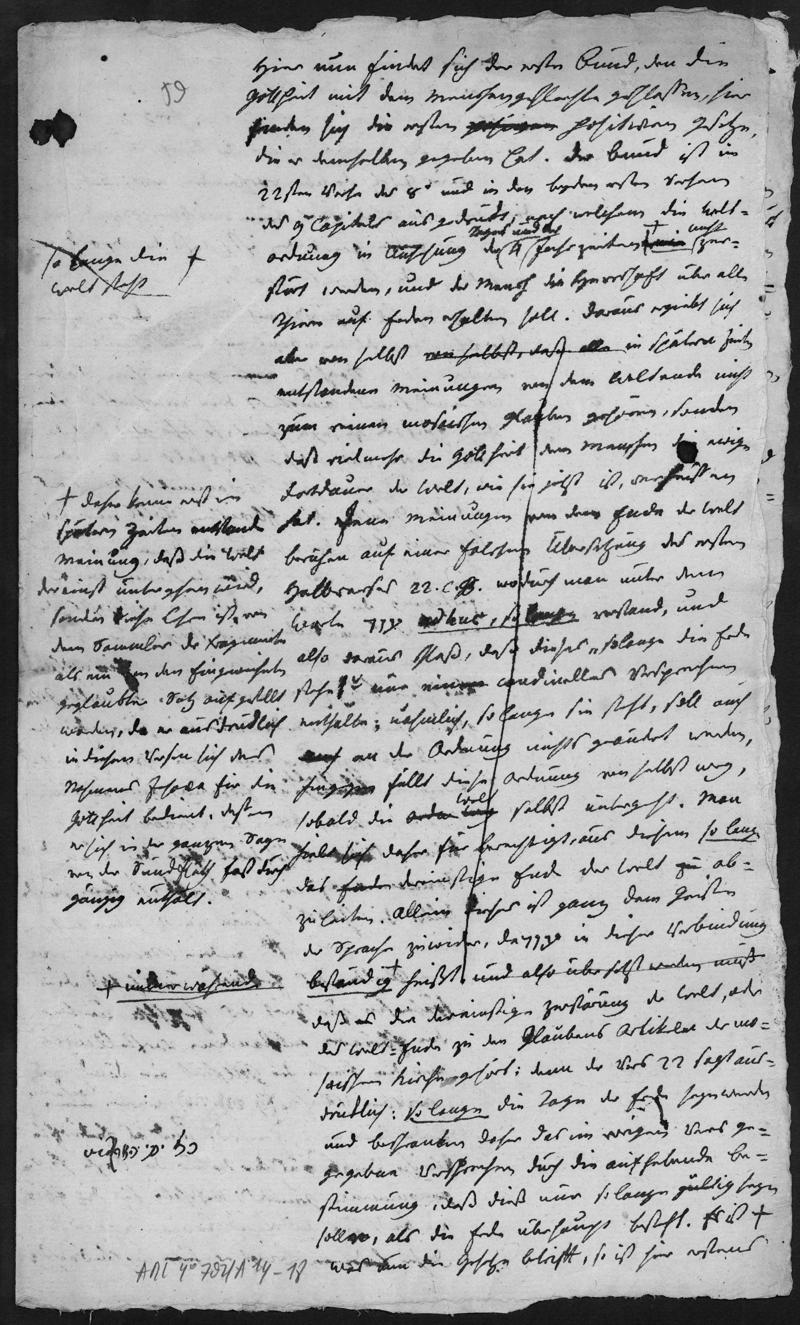 59
Hier nun findet sich der erste Bund, den die
Gottheit mit dem Menschengeschlechte geschlossen, hier
finden sich die ersten positiven Gesetze,
die er demselben gegeben hat. Der Bund ist im
22sten Verse des 8t und in den beyden ersten Versen
des 9 Capitels ausgedruckt, nach welchem die Welt-
ordnung in Ansehung der 4 Jahrszeiten nicht zer-
stört werden, und der Mensch die Herrschaft über alle
Thiere auf Erden erhalten soll. Daraus ergiebt sich
aber von selbst von selbst, daß alle in spätern Zeiten
entstandene Meinungen von dem Weltende nicht
zum reinen mosaischen Glauben gehören, sondern
daß vielmehr die Gottheit dem Menschen die ewige
Fortdauer der Welt, wie sie jetzt ist, verheissen
hat. Jene Meinungen von dem Ende der Welt
beruhen auf einer falschen Übersetzung des ersten
Halbverses 22. C. 8. wodurch man unter dem
Worte עד adhuc, so lange verstand, und
also daraus schloß, daß dieses „solange die Erde
steht" nur ein conditionelles Versprechen
enthalte; nehmlich, so lange sie steht, soll auch
an der Ordnung nichts geändert werden,
hingegen fällt diese Ordnung von selbst weg,
sobald die Welt selbst untergeht. Man
hielt sich daher für berechtigt, aus diesem so lange
das dereinstige Ende der Welt ab-
zuleiten. Allein dieses ist ganz dem Geiste
der Sprache zuwider, da in dieser Verbindung
beständig + heißt, und also übersetzt werden muß
daß es die dereinstige Zerstörung der Welt, oder
das Welt-Ende zu den Glaubens Artikeln der mo-
saischen Kirche gehört; denn der Vers 22 sagt aus-
drücklich: so lange die Tage der Erde seyn werden
und beschränken daher das im vorigen Vers ge-
gebene Versprechen durch die aufhebende Be-
stimmung, daß dieß nur so lange gültig seyn
sollen, als die Erde überhaupt besteht. Es ist +
was nun die Gesetze betrifft, so ist hier erstens
so lange die +
Welt steht
+ daher keine erst in
spätern Zeiten entstandene
Meinung, daß die Welt
dereinst untergehen wird,
sondern diese Lehre ist von
dem Sammler der Fragmente
als ein von den Eingeweihten
geglaubter Satz aufgestellt
worden, da er ausdrücklich
in diesen Versen sich des
Nahmens Jehova für die
Gottheit bedient, dessen
er sich in der ganzen Sage
von der Sündfluth fast durch
gängig enthält.
+ immerwährend
ARI 4° 782/A 14-18